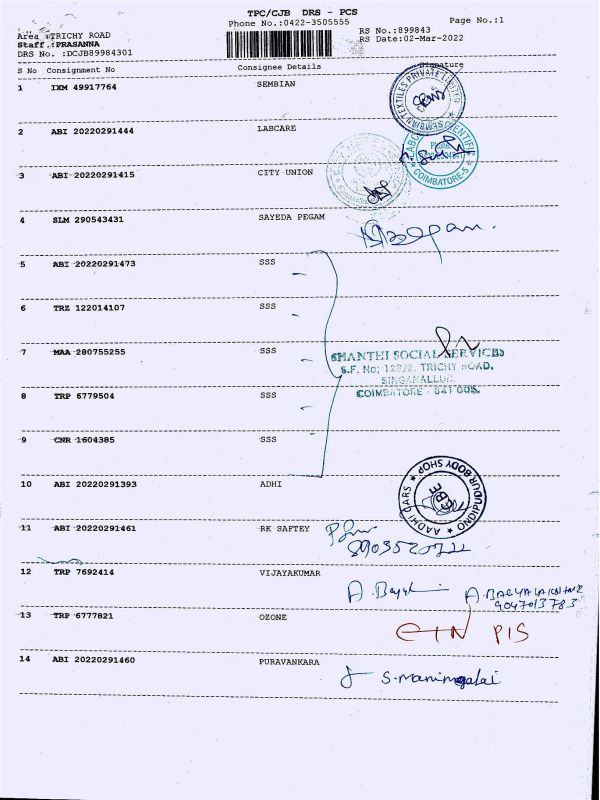 TPC/CJB DRS - PCS
Phone No.:0422-3505555
Page No.:1
Area :TRICHY ROAD
Staff :PRASANNA
DRS No. :DCJB89984301
RS No.:899843
RS Date:02-Mar-2022
S No Consignment No Consignee Details Signature
1 IXM 49917764 SEMBIAN
2 ABI 20220291444 LABCARE
3 ABI 20220291415 CITY UNION
4 SLM 290543431 SAYEDA PEGAM
5 ABI 20220291473 SSS
6 TRZ 122014107 SSS
7 MAA 280755255 SSS
SHANTHI SOCIAL SERVICES
S.F. No; 122/2. TRICHY ROAD,
SINGANALLUR,
COIMBATORE - 641 005.
8 TRP 6779504 SSS
9 CNR 1604385 SSS
10 ABI 20220291393 ADHI
AADHI CARS ★ ONDIPUDUR BODY SHOP ★
11 ABI 20220291461 RK SAFTEY
12 TRP 7692414 VIJAYAKUMAR
9047013783
13 TRP 6777821 OZONE
PIS
14 ABI 20220291460 PURAVANKARA
S. Manimegalai